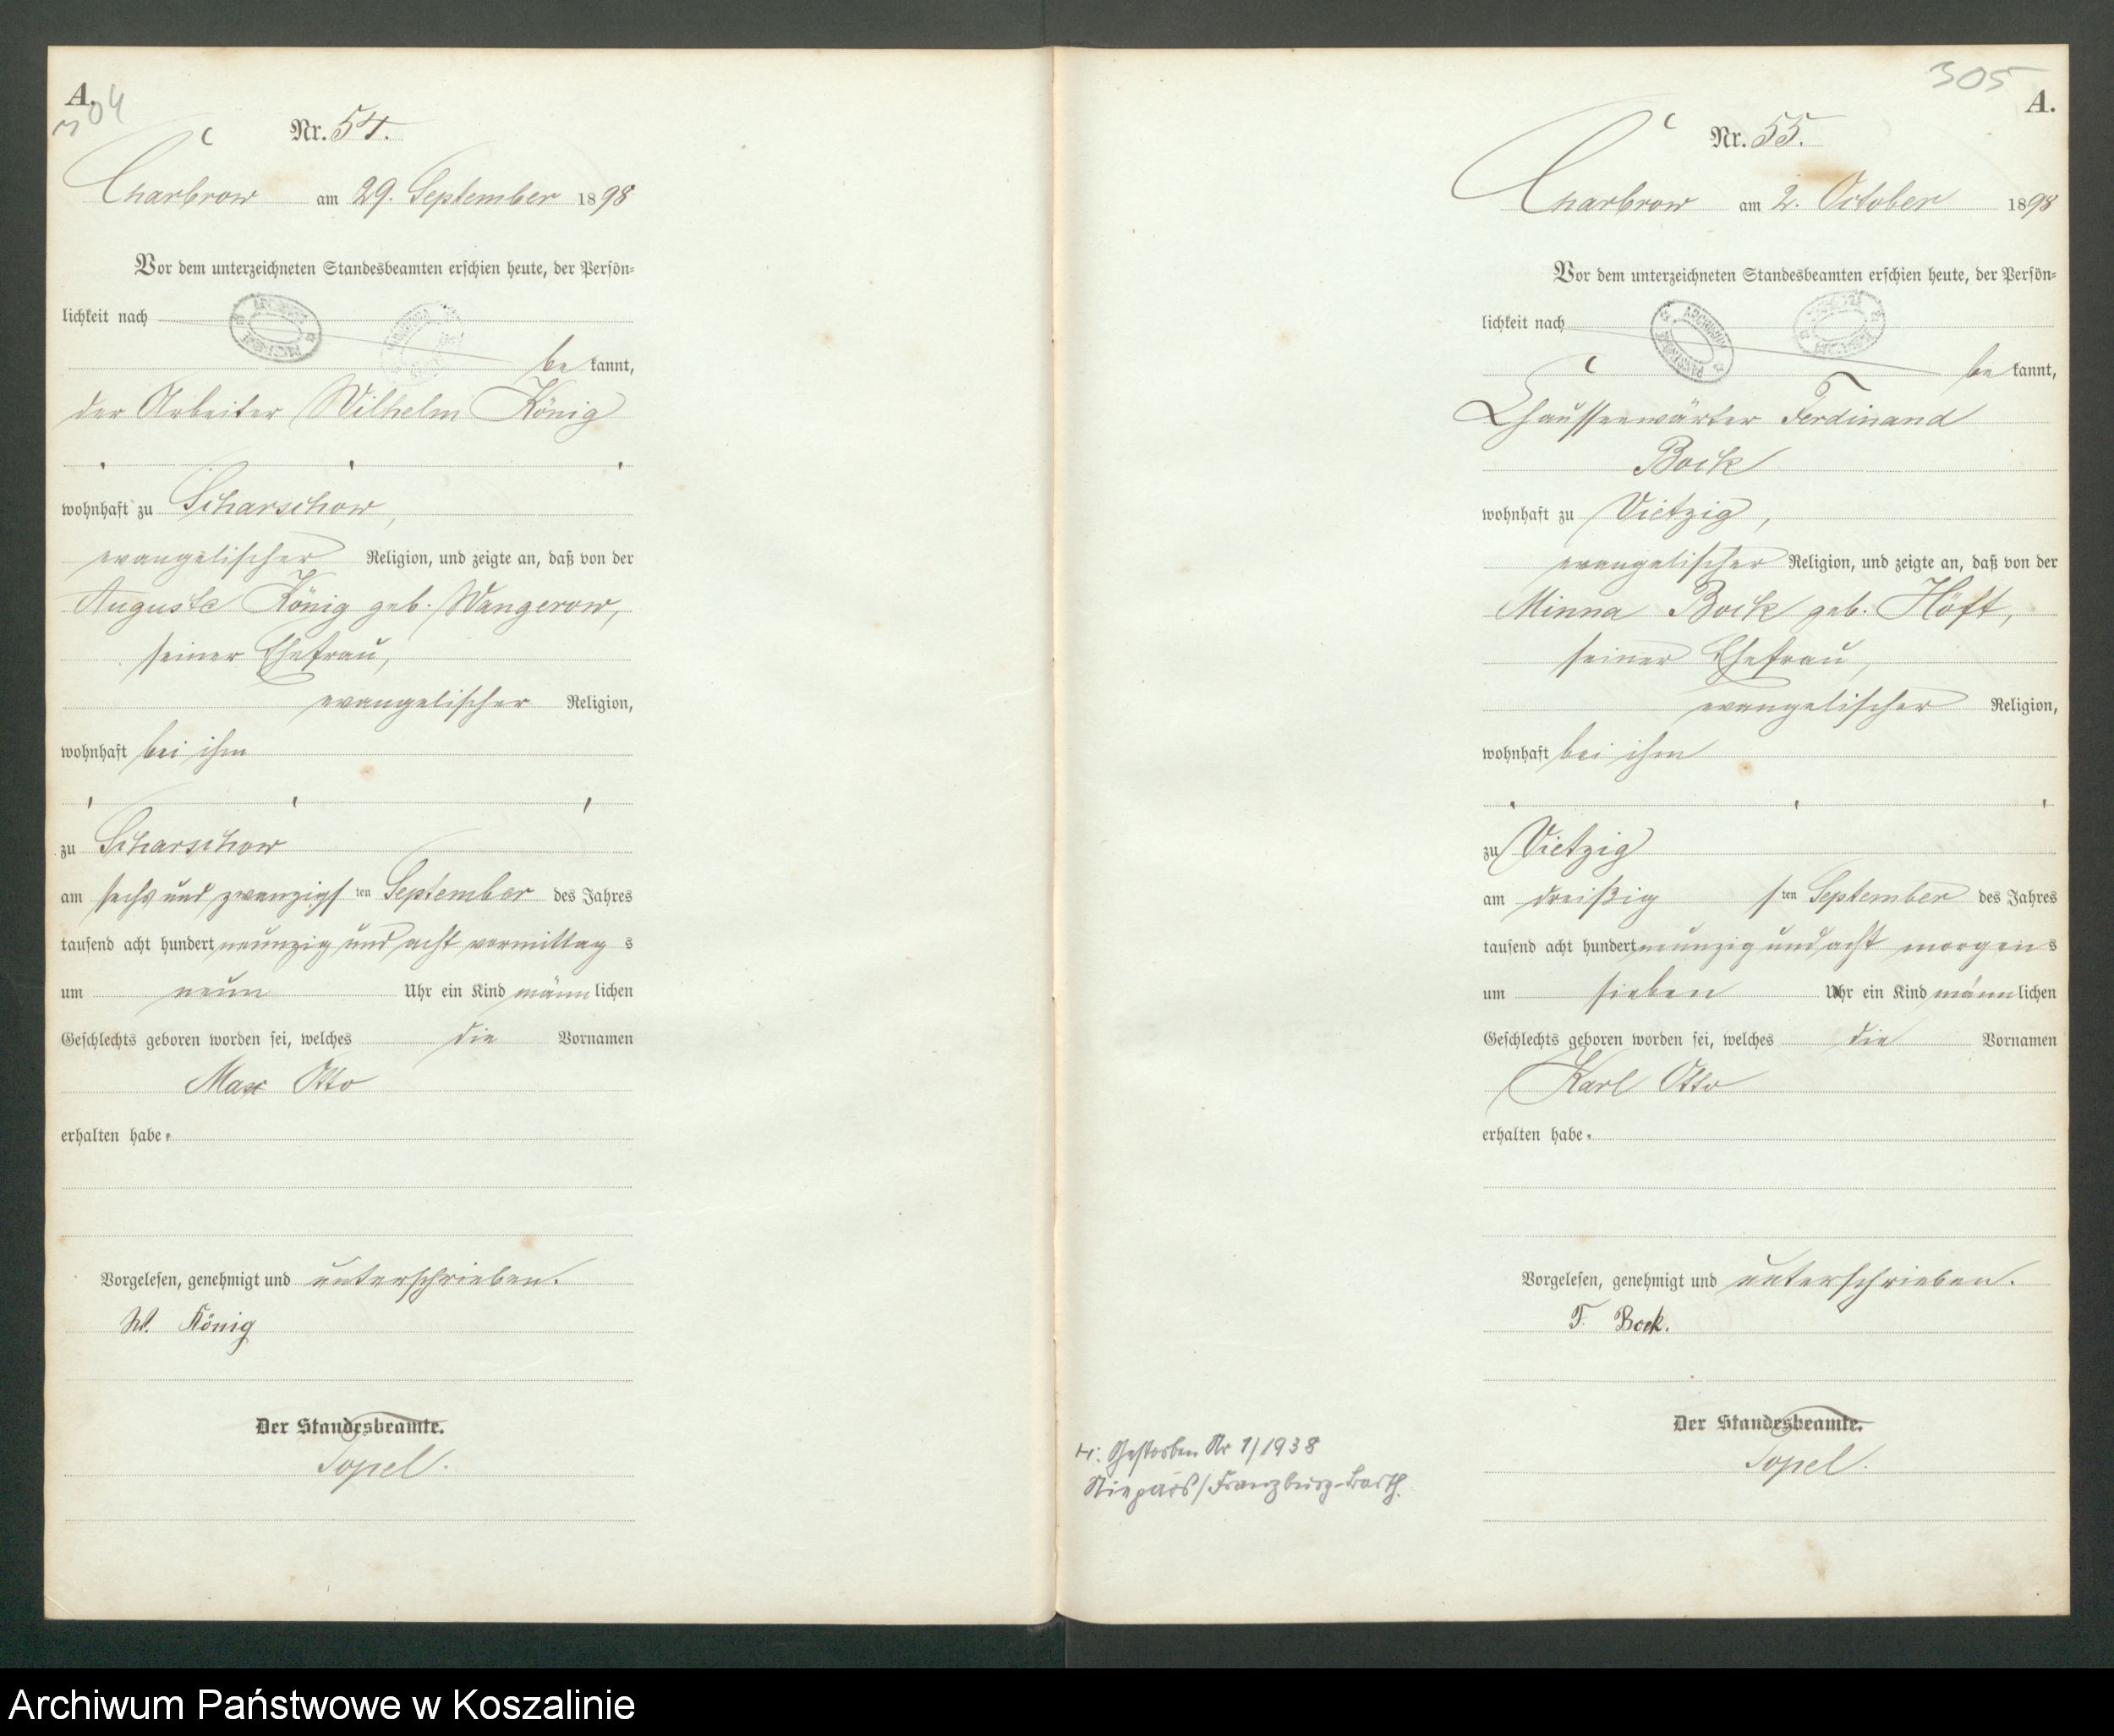 A.
304
Nr. 54.
Charbrow am 29. September 1898
Vor dem unterzeichneten Standesbeamten erschien heute, der Persön-
lichkeit nach
be kannt,
der Arbeiter Wilhelm König
wohnhaft zu Scharschow,
evangelischer Religion, und zeigte an, daß von der
Auguste König geb. Wangerow,
seiner Ehefrau,
evangelischer Religion,
wohnhaft bei ihm
zu Scharschow
am sechs und zwanzigs ten September des Jahres
tausend acht hundert neunzig und acht vormittag s
um neun Uhr ein Kind männ lichen
Geschlechts geboren worden sei, welches die Vornamen
Max Otto
erhalten habe.
Vorgelesen, genehmigt und unterschrieben.
W. König
Der Standesbeamte.
Topel.
305
A.
Nr. 55.
Charbrow am 2. October 1898
Vor dem unterzeichneten Standesbeamten erschien heute, der Persön-
lichkeit nach
be kannt,
Chausseewärter Ferdinand
Bock
wohnhaft zu Vietzig,
evangelischer Religion, und zeigte an, daß von der
Minna Bock geb. Höft,
seiner Ehefrau,
evangelischer Religion,
wohnhaft bei ihm
zu Vietzig
am dreißig s ten September des Jahres
tausend acht hundert neunzig und acht morgen s
um sieben Uhr ein Kind männ lichen
Geschlechts geboren worden sei, welches die Vornamen
Karl Otto
erhalten habe.
Vorgelesen, genehmigt und unterschrieben.
F. Bock.
Der Standesbeamte.
Topel.
H: Gestorben Nr 1/1938
Niepars/Franzburg-Barth.
Archiwum Państwowe w Koszalinie